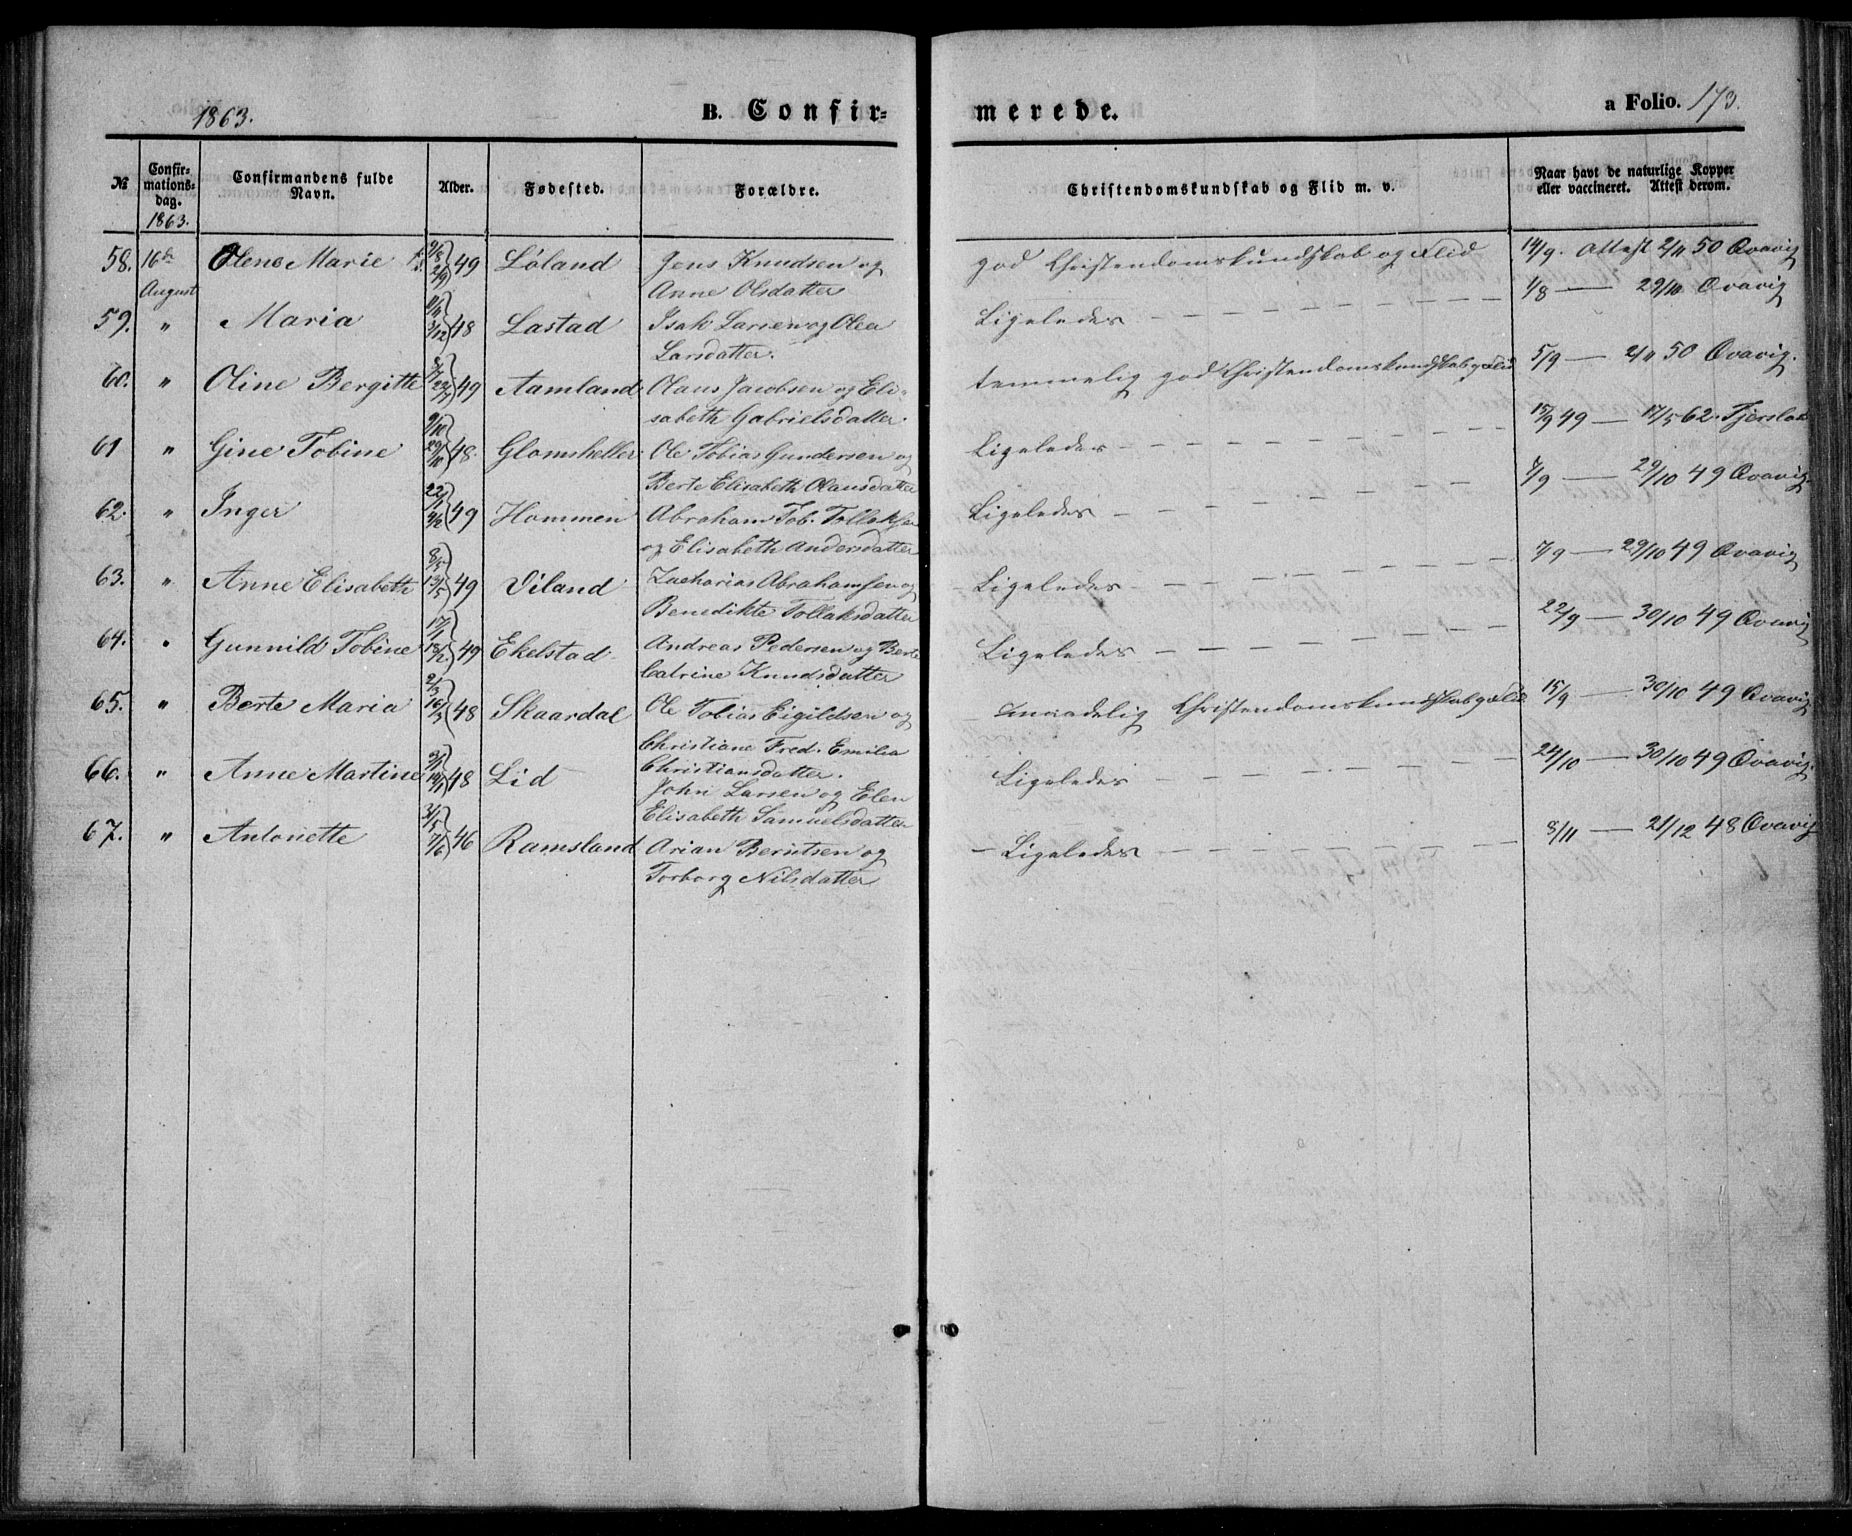 1863.
B. Confir=
merede.
a Folio. 173.
№
Confir=
mations=
dag.
1863.
Confirmandens fulde
Navn.
Alder.
Fødested.
Forældre.
Christendomskundskab og Flid m. v.
Naar havt de naturlige Kopper
eller vaccineret. Attest derom.
58. 16de Olene Marie 49 Löland Jens Knudsen og god Christendomskundskab og Flid 14/9. Attest 2/11 50 Qvavig
August Anne Olsdatter
59. " Maria 3/12 48 Lastad Isak Larsen og Olea Ligeledes 1/8 — 29/10 Qvavig
Larsdatter.
60. " Oline Bergitte 49 Aamland Olaus Jacobsen og Eli- temmelig god Christendomskundskab og Flid 5/9 — 2/11 50 Qvavig.
sabeth Gabrielsdatter.
61 " Gine Tobine 9/10 29/10 48. Glomsheller Ole Tobias Gundersen og Ligeledes 15/9 49 — 17/5 62.
Berte Elisabeth Olausdatter
62. " Inger 22/1 49 Hommen Abraham Tob. Tollaksen Ligeledes 7/9 — 29/10 49 Qvavig.
og Elisabeth Andersdatter
63. " Anne Elisabeth 8/5 13/5 49 Viland Zacharias Abrahamsen og Ligeledes 7/9 — 29/10 49 Qvavig
Benedikte Tollaksdatter
64. " Gunnild Tobine 17/1 18/2 49 Ekelstad Andreas Pedersen og Berte Ligeledes 22/9 — 30/10 49 Qvavig
Catrine Knudsdatter
65. " Berte Maria 2/3 16/3 48 Skaardal Ole Tobias Eigildsen og maadelig Christendomskundskab og Flid 15/9 — 30/10 49 Qvavig.
Christiane Fred. Emilia
Christiansdatter.
66. " Anne Martine 48 Lid John Larsen og Elen Ligeledes 24/10 — 30/10 49 Qvavig.
Elisabeth Samuelsdatter
67. " Antonette 31/5 7/6 46 Ramsland Arian Berntsen og Ligeledes 8/11 — 21/12 48 Qvavig
Torborg Nilsdatter